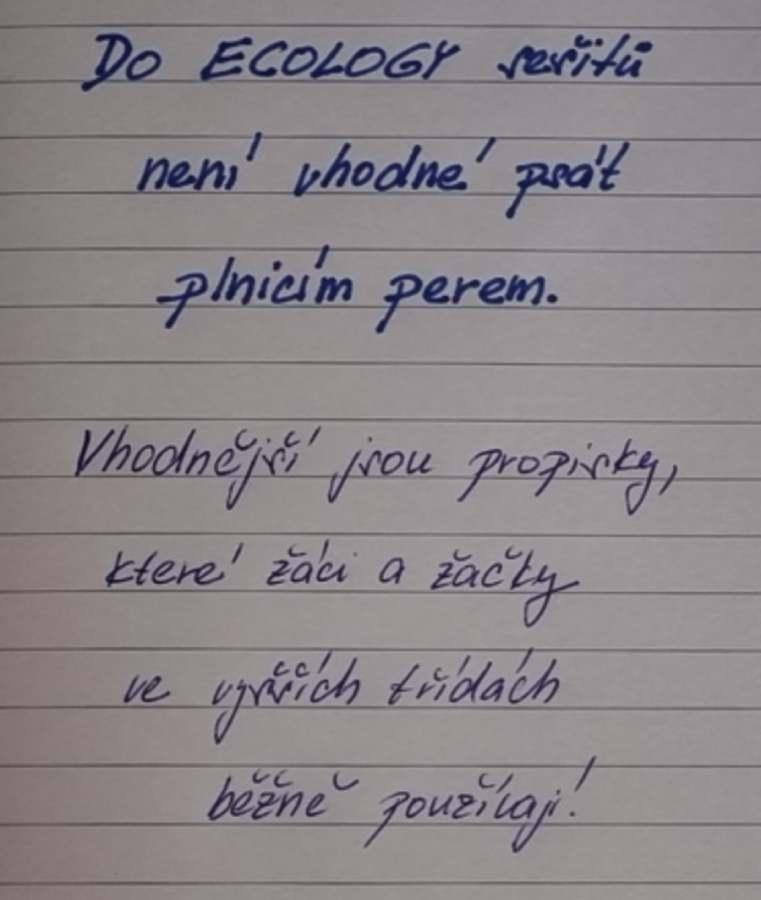 Do ECOLOGY sešitů
není vhodné psát
plnicím perem.
Vhodnější jsou propisky,
které žáci a žačky
ve vyšších třídách
běžně používají!